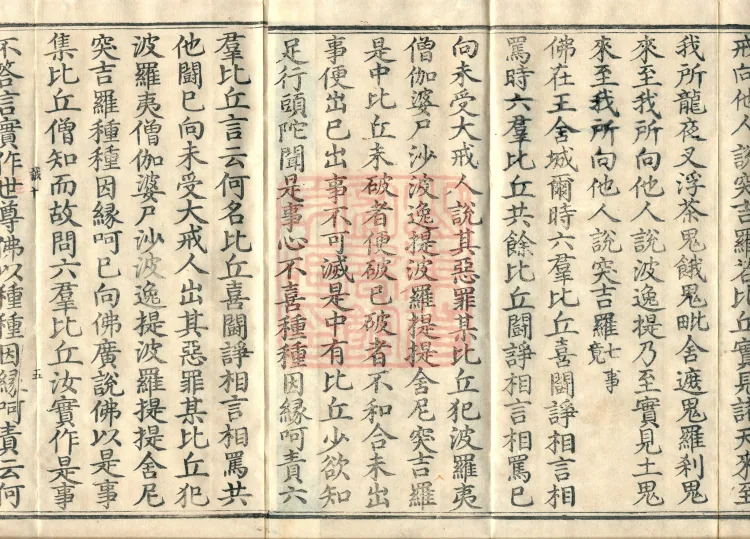 戒向他人說突吉羅若比丘實見諸天來至
我所龍夜叉浮茶鬼餓鬼毗舍遮鬼羅刹鬼
來至我所向他人說波逸提乃至實見土鬼
來至我所向他人說突吉羅七事竟
佛在王舍城爾時六羣比丘喜鬪諍相言相
罵時六羣比丘共餘比丘鬪諍相言相罵已
向未受大戒人說其惡罪某比丘犯波羅夷
僧伽婆尸沙波逸提波羅提提舍尼突吉羅
是中比丘未破者便破已破者不和合未出
事便出已出事不可滅是中有比丘少欲知
足行頭陀聞是事心不喜種種因緣呵責六
羣比丘言云何名比丘喜鬪諍相言相罵共
他鬪已向未受大戒人出其惡罪某比丘犯
波羅夷僧伽婆尸沙波逸提波羅提提舍尼
突吉羅種種因緣呵已向佛廣說佛以是事
集比丘僧知而故問六羣比丘汝實作是事
十 五
不答言實作世尊佛以種種因緣呵責云何